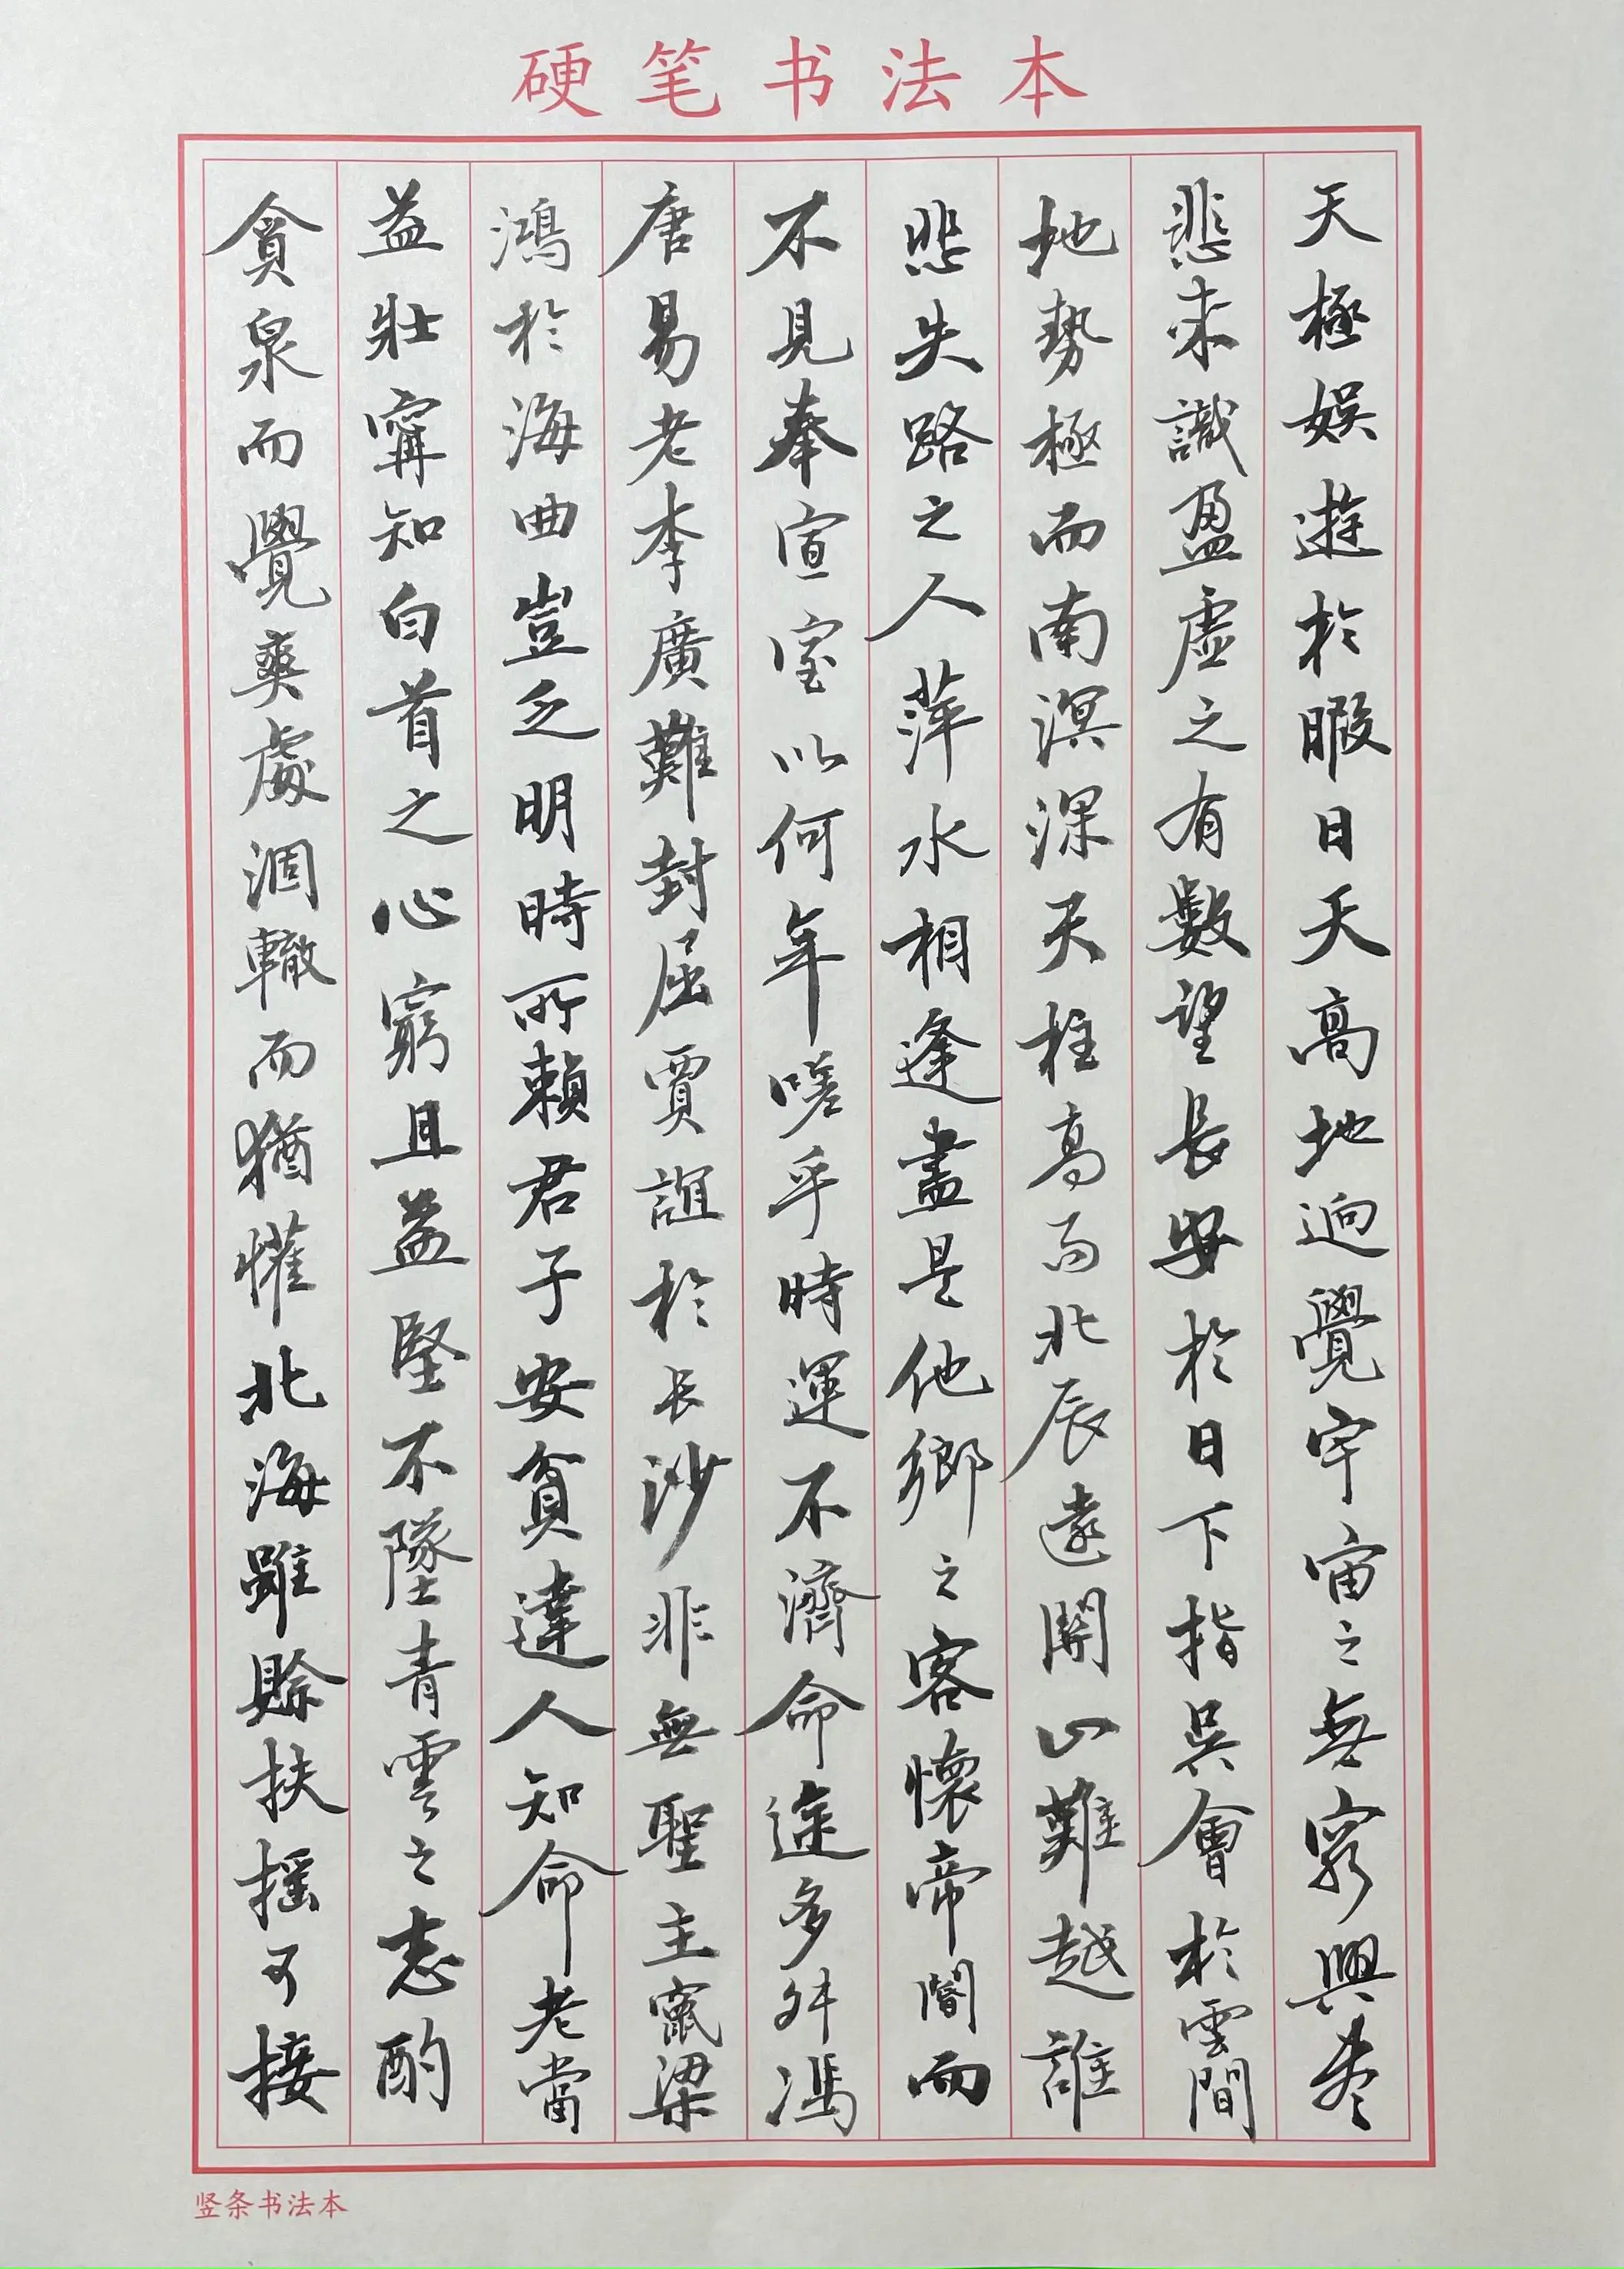 硬笔书法本
天極娛遊於暇日天高地迥覺宇宙之無窮興盡
悲来識盈虛之有數望長安於日下指吳會於雲間
地勢極而南溟深天柱高而北辰遠關山難越誰
悲失路之人萍水相逢盡是他鄉之客懷帝閽而
不見奉宣室以何年嗟乎時運不濟命途多舛馮
唐易老李廣難封屈賈誼於长沙非無聖主竄梁
鴻於海曲豈乏明時所賴君子安貧達人知命老當
益壯寧知白首之心窮且益堅不墜青雲之志酌
貪泉而覺爽處涸轍而猶懽北海雖賒扶摇可接
竖条书法本